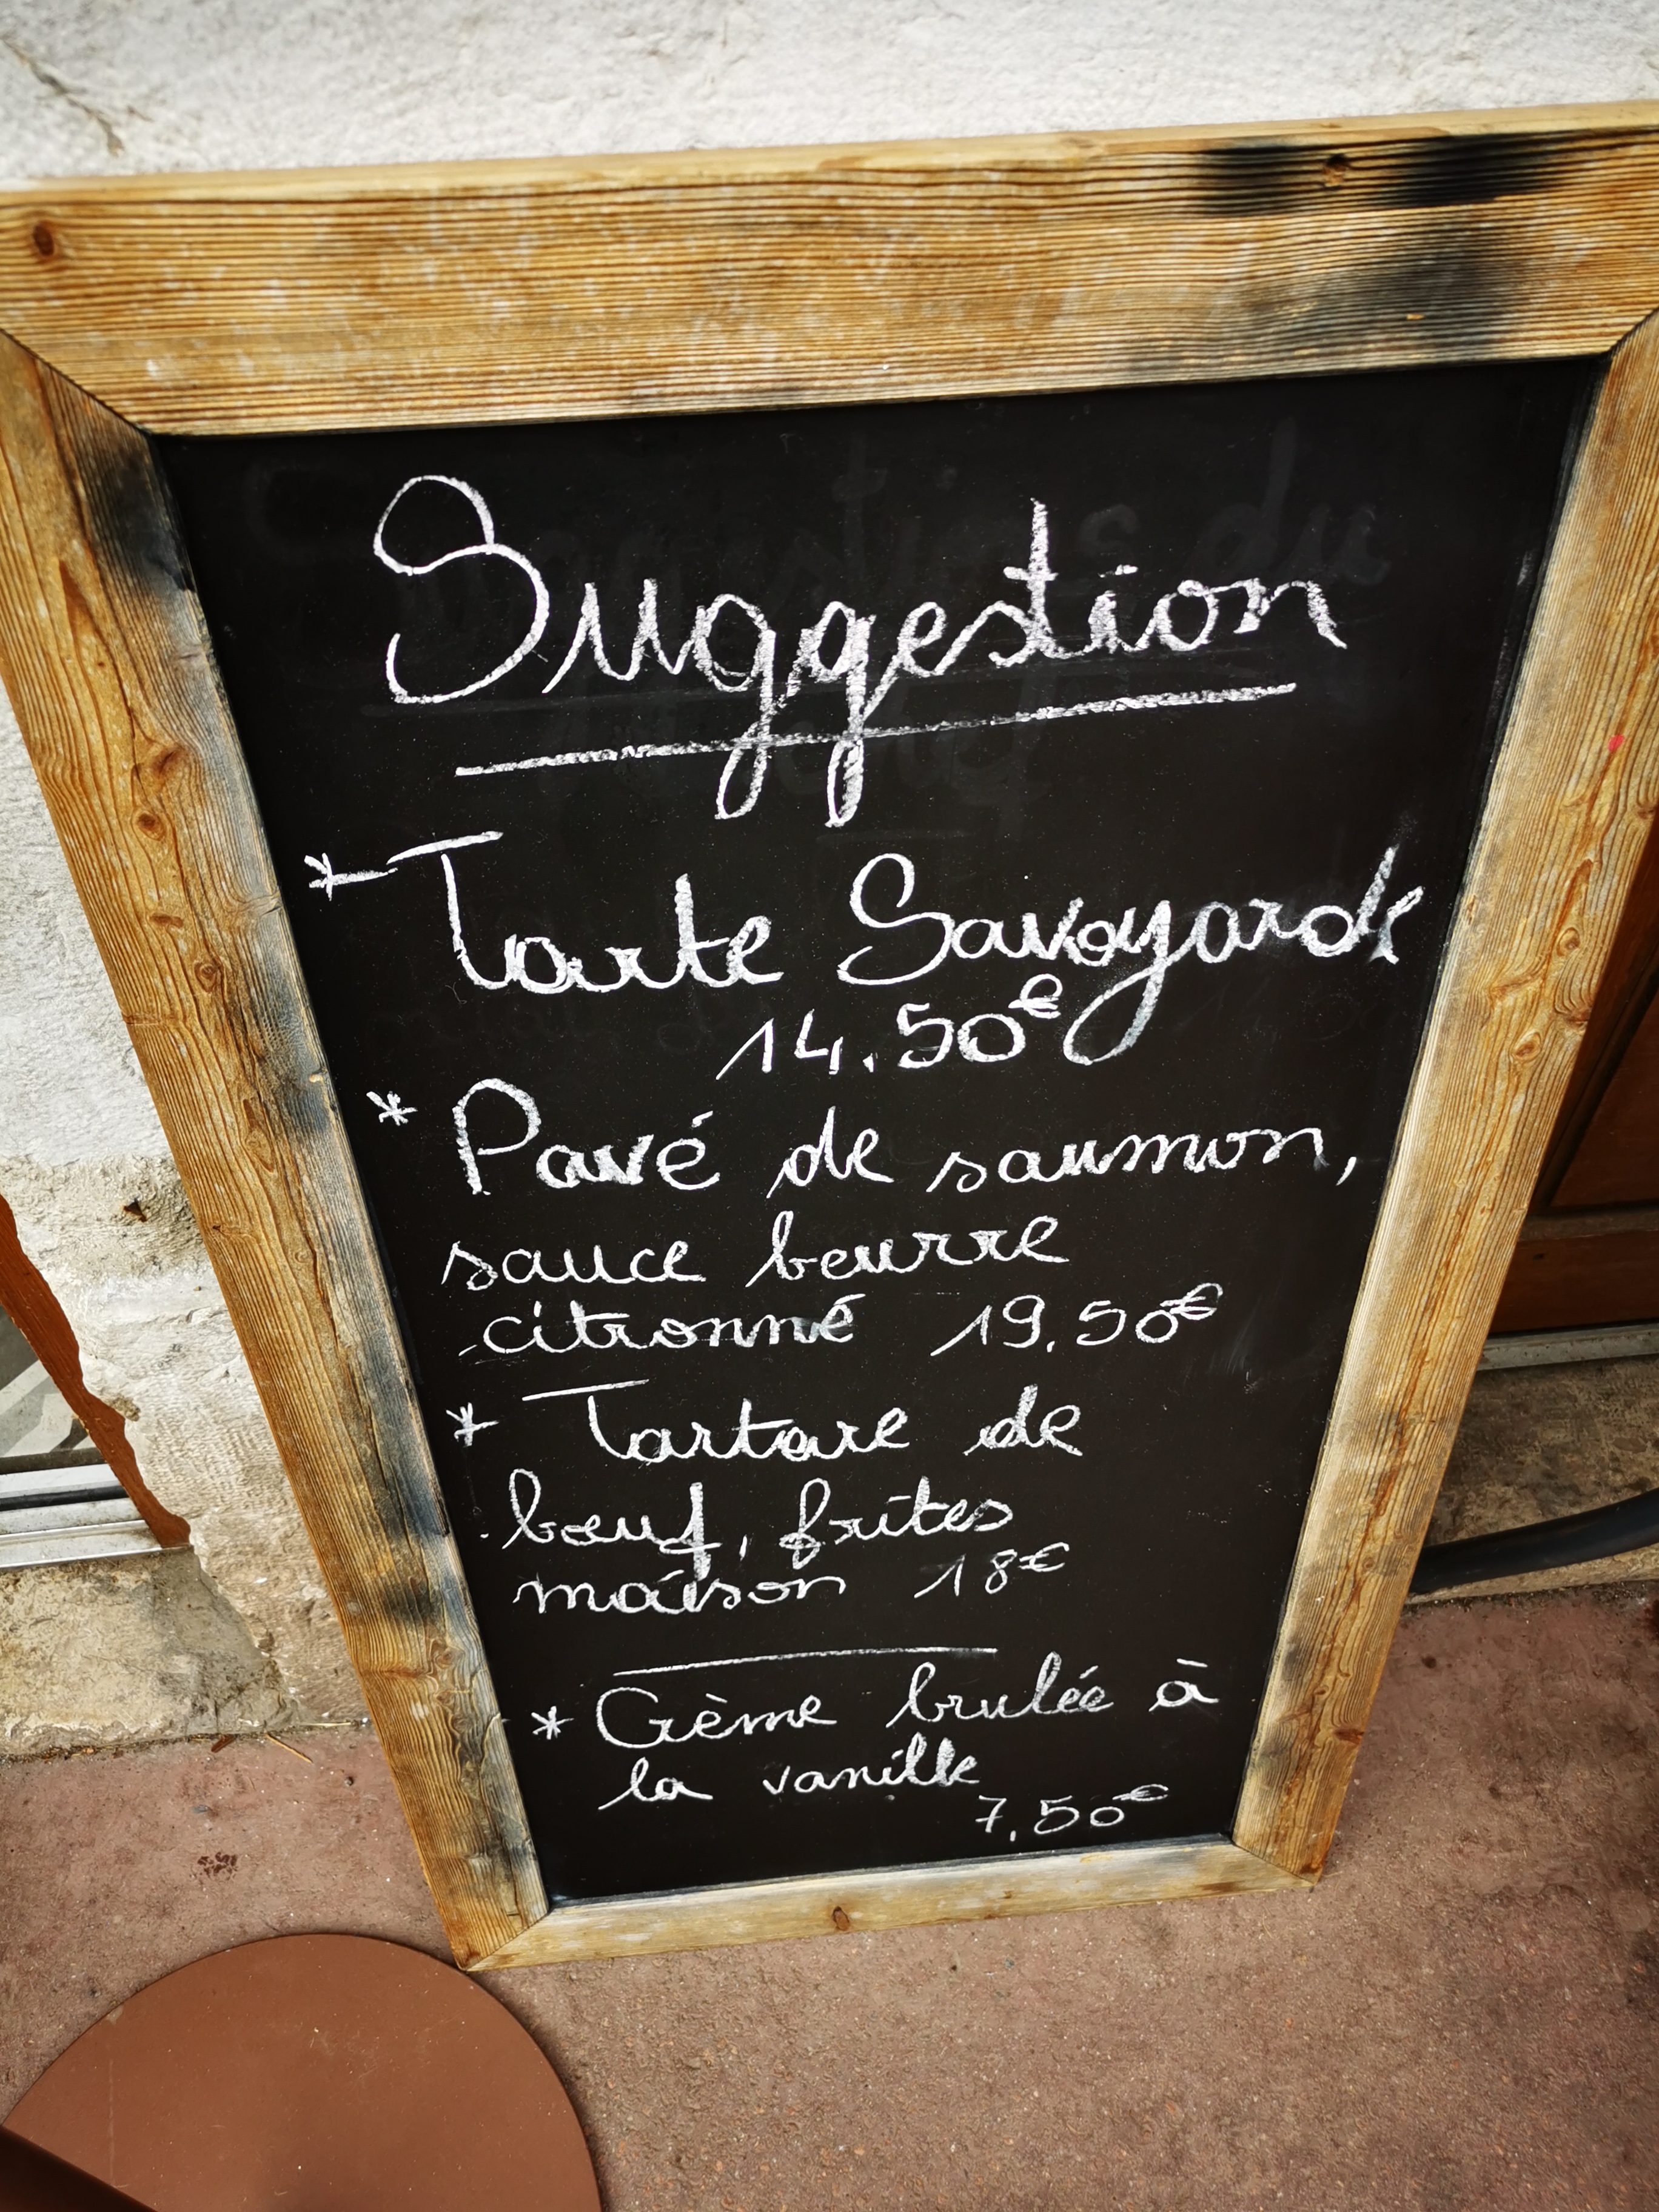 Suggestion
* Tarte Savoyarde
14.50€
* Pavé de saumon,
sauce beurre
citronné 19.50€
* Tartare de
bœuf, frites
maison 18€
* Crème brulée à
la vanille
7,50€